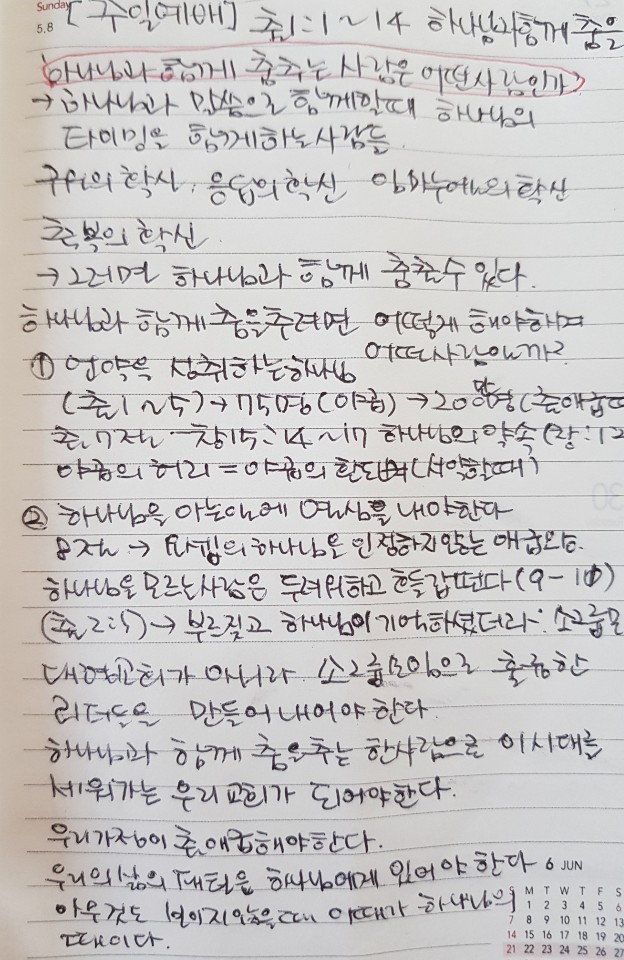 Sunday
5.8
[주일예배] 출1:1~14 하나님과 함께 춤을
하나님과 함께 춤추는 사람은 어떤사람인가?
→ 하나님과 말씀으로 함께할때 하나님의
타이밍을 함께하는사람들.
구원의 확신, 응답의 확신 임마누엘의 확신
축복의 확신
→ 그러면 하나님과 함께 춤출수 있다.
하나님과 함께 춤을추려면 어떻게 해야하며
어떤사람입니까?
① 언약을 성취하는하나님
(출1~5) → 75명(야곱) → 200만명(출애굽
출.7절 창15:14~17 하나님의 약속 (창:12
야곱의 허리 = 야곱의 환도뼈(서약할때)
② 하나님을 아는일에 열심을 내야한다
8절 → 요셉의 하나님을 인정하지않는 애굽왕.
하나님을 모르는사람은 두려워하고 흔들갑떤다(9-10)
(출2장) → 부르짖고 하나님이 기억하셨더라. 소그룹모
대형교회가 아니라 소그룹모임으로 훌륭한
리더들을 만들어내어야 한다.
하나님과 함께 춤을추는 한사람으로 이시대를
세워가는 우리교회가 되어야한다.
우리가정이 출애굽해야한다.
우리의 삶의 패턴을 하나님에게 있어야 한다
아무것도 보이지않을때 이때가 하나님의
때이다.
6 JUN
S M T W T F S
1 2 3 4 5 6
7 8 9 10 11 12 13
14 15 16 17 18 19 20
21 22 23 24 25 26 27
30